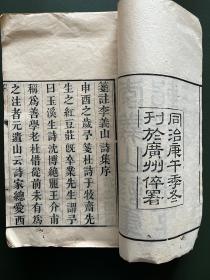 同治庚午季冬
刊於廣州倅署
箋註李義山詩集序
申酉之歲予箋杜詩于牧齋先
生之紅豆莊旣卒業先生謂予
曰玉溪生詩沈博絕麗王介甫
稱爲善學老杜惜從前未有爲
之注者元遺山云詩家總愛西